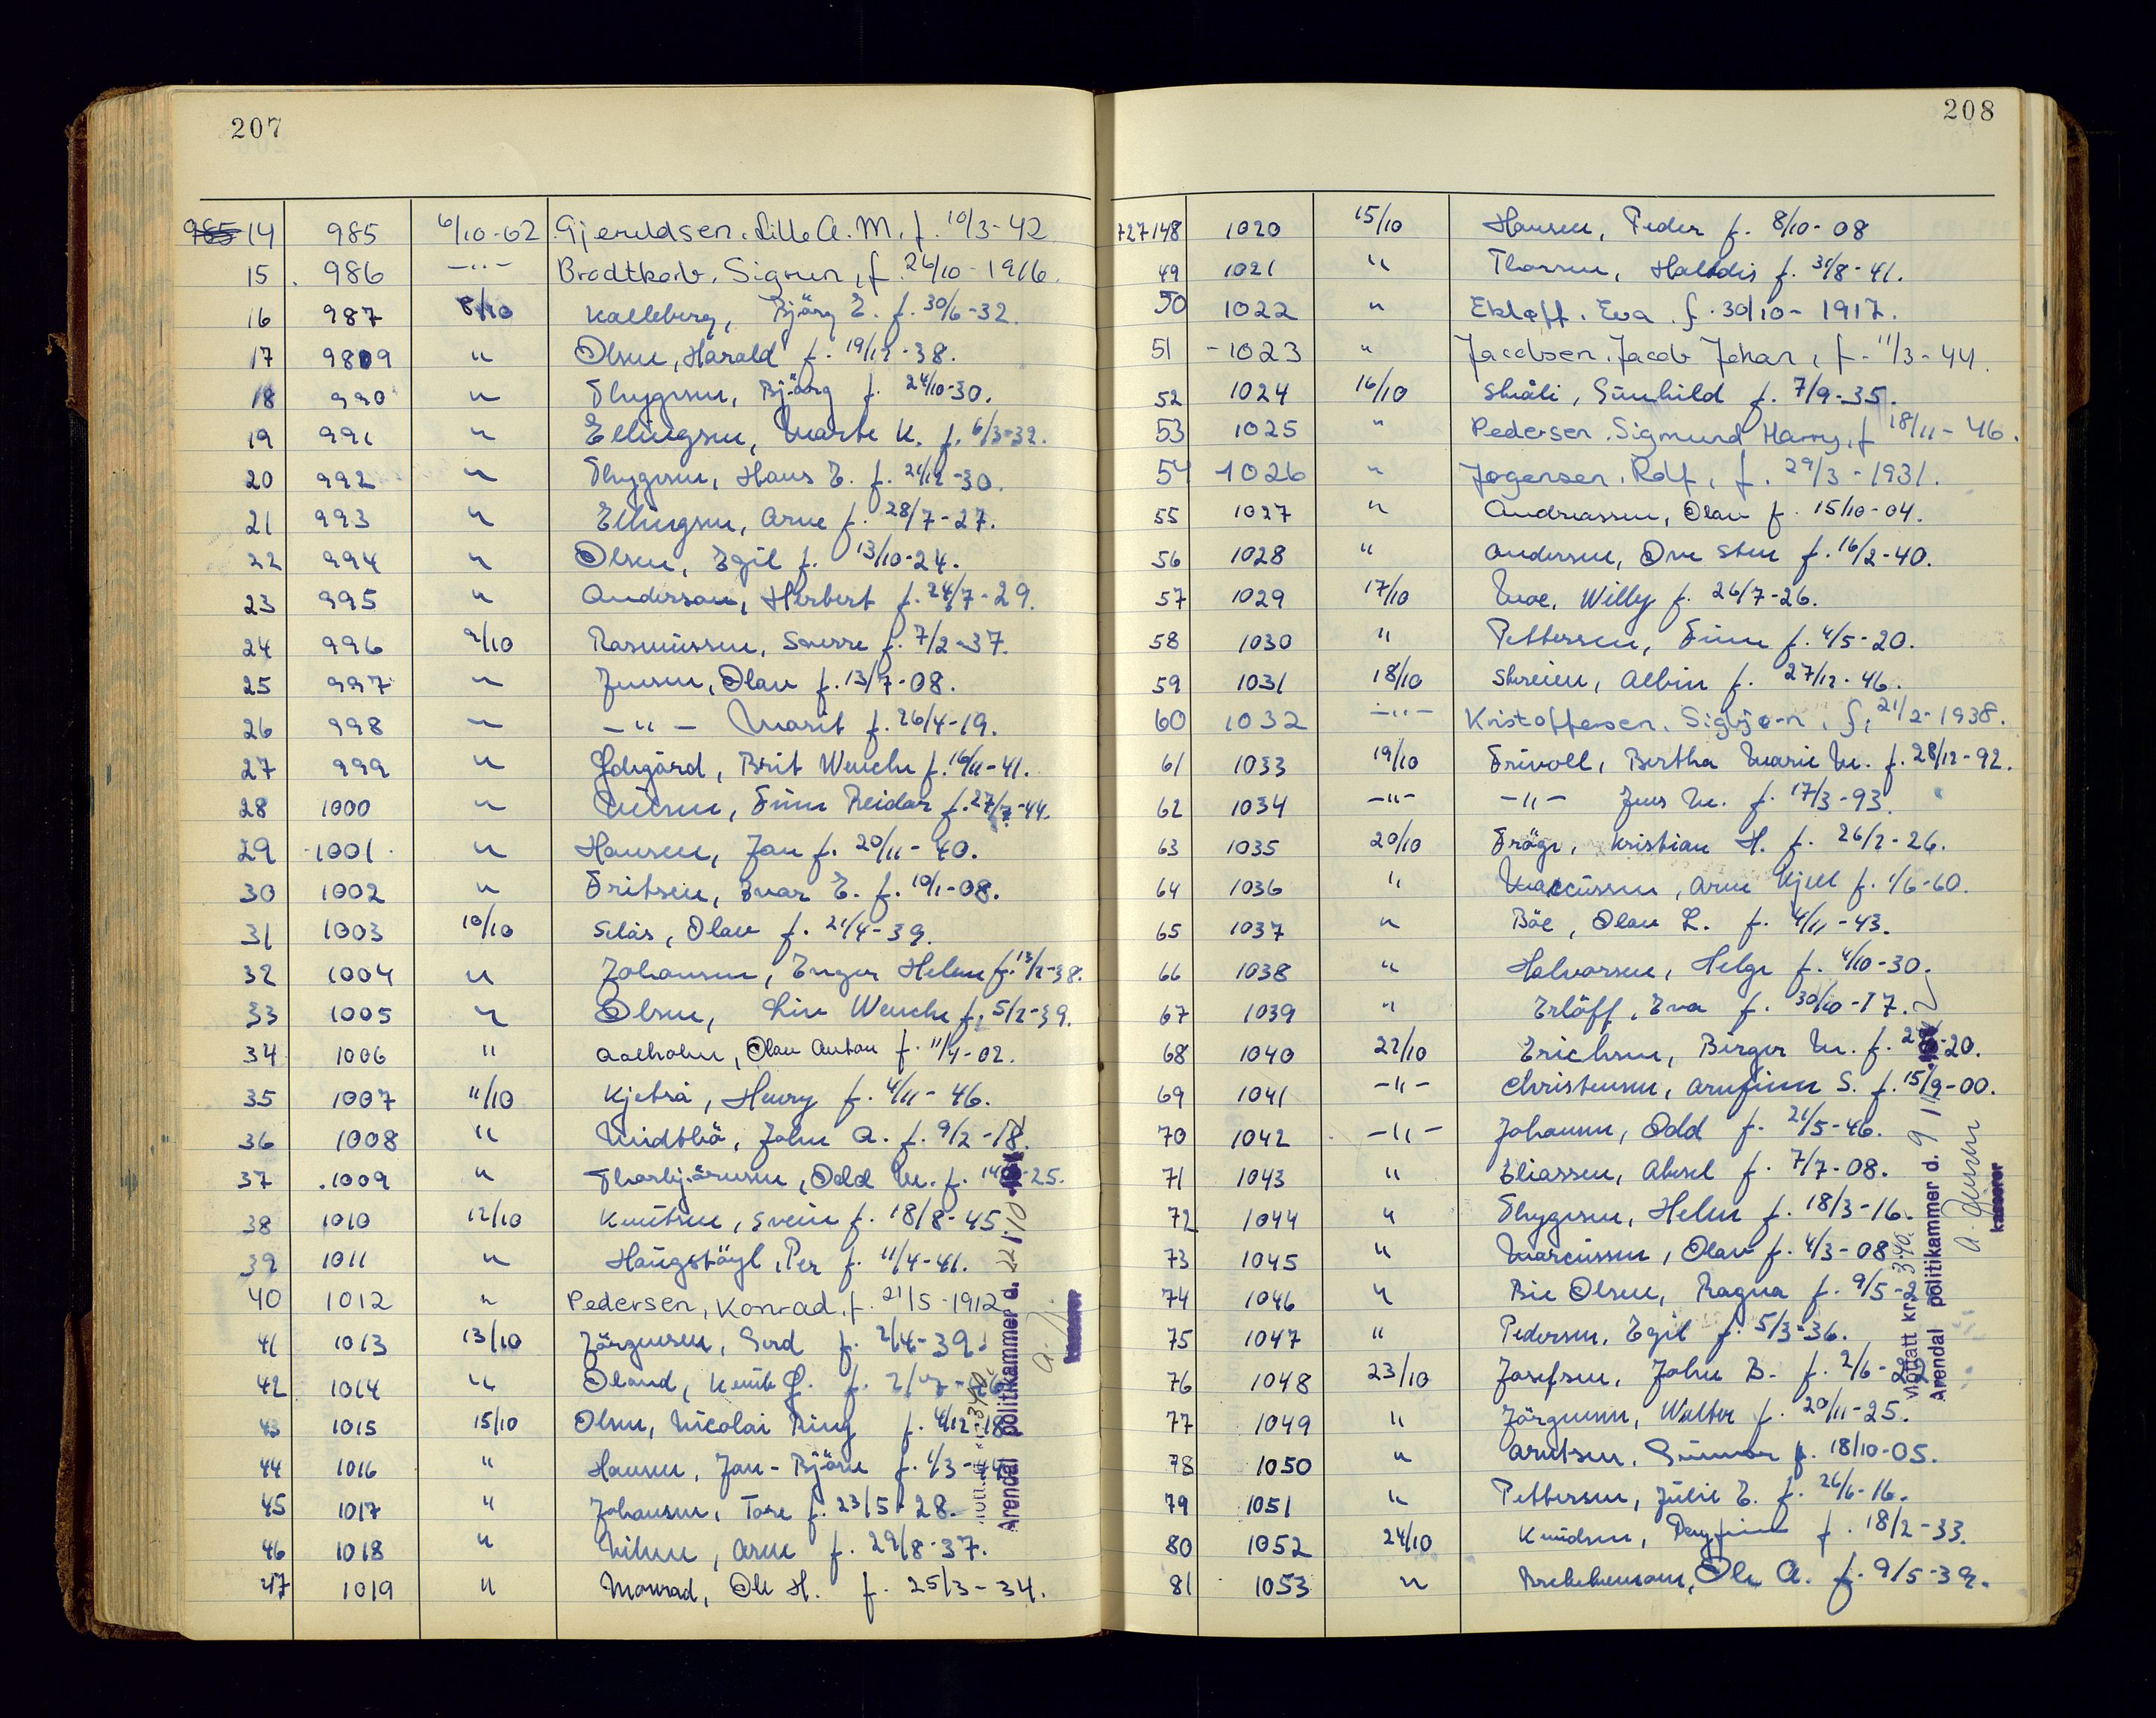 207
14 985 6/10-62 Gjeruldsen. Lille A. M. f. 10/3-42
15 986 -"- Brodtkorb. Sigrun, f. 26/10-1916.
16 987 8/10 Kalleberg, Bjørg E. f. 30/6-32.
17 989 " Olsen, Harald f. 19/12-38.
18 990 " Thygesen, Bjørg f. 24/10-30.
19 991 " Ellingsen, Marte K. f. 6/3-32.
20 992 " Thygesen, Hans E. f. 21/12-30.
21 993 " Ellingsen, Arne f. 28/7-27.
22 994 " Olsen, Egil f. 13/10-24.
23 995 " Anderson, Herbert f. 24/7-29.
24 996 9/10 Rasmussen, Sverre f. 7/2-37.
25 997 " Jensen, Olav f. 13/7-08.
26 998 " -"- Marit f. 26/4-19.
27 999 " Ødegård, Brit Wenche f. 16/11-41.
28 1000 " Nilsen, Finn Reidar f. 27/7-44.
29 1001 " Hansen, Jan f. 20/11-40.
30 1002 " Fritsen, Ivar E. f. 10/1-08.
31 1003 10/10 Selås, Olav f. 21/4-39.
32 1004 " Johansen, Inger Helene f. 13/2-38.
33 1005 " Olsen, Liv Wenche f. 5/2-39.
34 1006 " Aalholm, Olav Anton f. 11/4-02.
35 1007 11/10 Kjetså, Henry f. 4/11-46.
36 1008 " Midtbø, John A. f. 9/2-18.
37 1009 " Thorbjørnsen, Odd M. f. 25.
38 1010 12/10 Knutsen, Svein f. 18/8-45
39 1011 " Haugstøyl, Per f. 11/4-41.
40 1012 " Pedersen, Konrad, f. 21/5-1912
41 1013 13/10 Jørgensen, Gerd f. 2/4-39.
42 1014 " Øland, Knut G. f.
43 1015 15/10 Olsen, Nicolai Ring f. 4/12-18
44 1016 " Hansen, Jan-Bjørn f. 1/3-44
45 1017 " Johansen, Tore f. 23/5-28.
46 1018 " Nilsen, Arne f. 29/8-37.
47 1019 " Monrad, Ole H. f. 25/3-34.
Arendal politikammer d. 22/10
kasserer
208
727148 1020 15/10 Hansen, Peder f. 8/10-08
49 1021 " Thorsen, Halldis f. 31/8-41.
50 1022 " Ekløff. Eva. f. 30/10-1917.
51 -1023 " Jacobsen. Jacob Johan, f. 11/3-44.
52 1024 16/10 Skåli, Gunhild f. 7/9-35.
53 1025 " Pedersen. Sigmund Harry, f 18/11-46.
54 1026 " Jøgensen. Rolf, f. 29/3-1931.
55 1027 " Andreassen, Olav f. 15/10-04.
56 1028 " Andersen, Ove Sten f. 16/2-40.
57 1029 17/10 Moe, Willy f. 26/7-26.
58 1030 " Pettersen, Finn f. 4/5-20.
59 1031 18/10 Skreien, Albin f. 27/12-46.
60 1032 -"- Kristoffersen. Sigbjørn, f, 21/2-1938.
61 1033 19/10 Frivoll, Bertha Marie M. f. 28/12-92.
62 1034 -"- -"- Jens M. f. 17/3-93.
63 1035 20/10 Kristian H. f. 26/2-26.
64 1036 " Marcussen, Arne Kjell f. 1/6-60.
65 1037 " Bøe, Olav L. f. 4/11-43.
66 1038 " Halvorsen, Helge f. 4/10-30.
67 1039 " Erløff, Eva f. 30/10-17.
68 1040 22/10 Erichsen, Birger M. f. -20.
69 1041 -"- Christensen, Arnfinn S. f. 15/9-00.
70 1042 -"- Johansen, Odd f. 21/5-46.
71 1043 " Eliassen, Aksel f. 7/7-08.
72 1044 " Thygesen, Helen f. 18/3-16.
73 1045 " Marcussen, Olav f. 4/3-08
74 1046 " Bie Olsen, Ragna f. 9/5-2
75 1047 " Pedersen, Egil f. 5/3-36.
76 1048 23/10 Josefsen, John B. f. 2/6-22
77 1049 " Jørgensen, Walter f. 20/11-25.
78 1050 " Arntsen, Gunnar f. 18/10-05.
79 1051 " Pettersen, Julie E. f. 26/6-16.
80 1052 24/10 Knudsen, Dagfinn f. 18/2-33.
81 1053 " Ole A. f. 9/5-39.
Mottatt kr. 340.
Arendal politikammer d. 9/11
kasserer